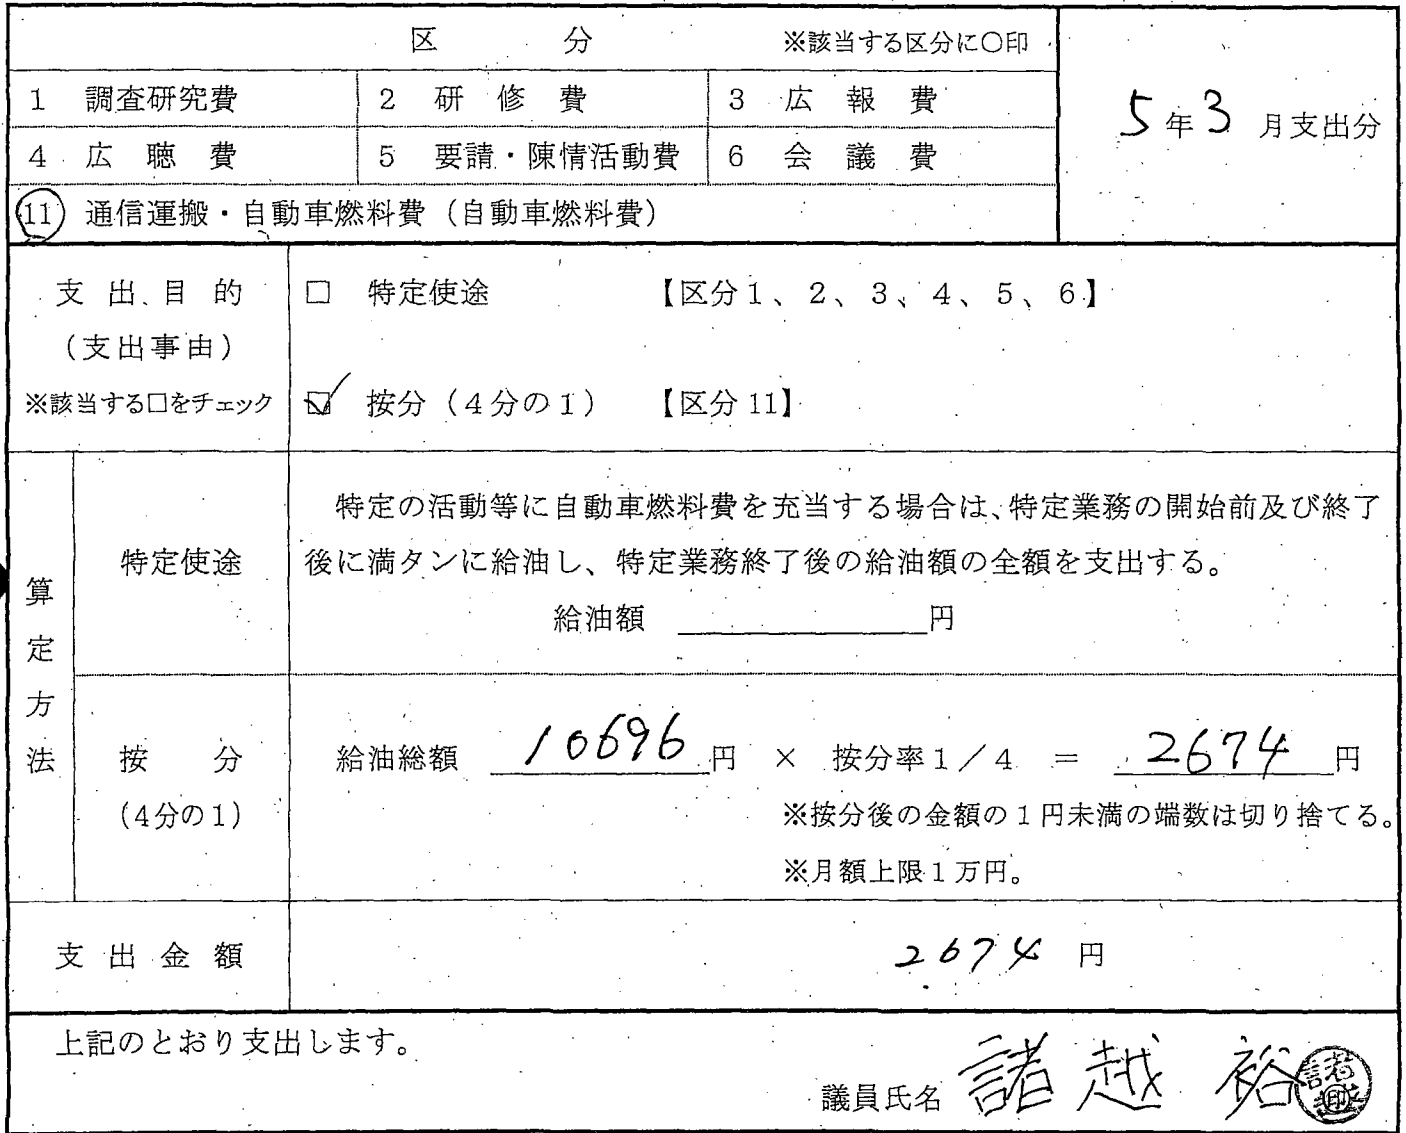 区 分 ※該当する区分に〇印
5年3月支出分
1 調査研究費 2 研修費 3 広報費
4 広聴費 5 要請・陳情活動費 6 会議費
11 通信運搬・自動車燃料費（自動車燃料費）
支出目的
（支出事由）
※該当する□をチェック
□ 特定使途 【区分1、2、3、4、5、6】
☑ 按分（4分の1） 【区分11】
算定方法
特定使途
特定の活動等に自動車燃料費を充当する場合は、特定業務の開始前及び終了
後に満タンに給油し、特定業務終了後の給油額の全額を支出する。
給油額 円
按分
（4分の1）
給油総額 10696円 × 按分率1／4 ＝ 2674円
※按分後の金額の1円未満の端数は切り捨てる。
※月額上限1万円。
支出金額 2674円
上記のとおり支出します。
議員氏名 諸越 裕 諸越印